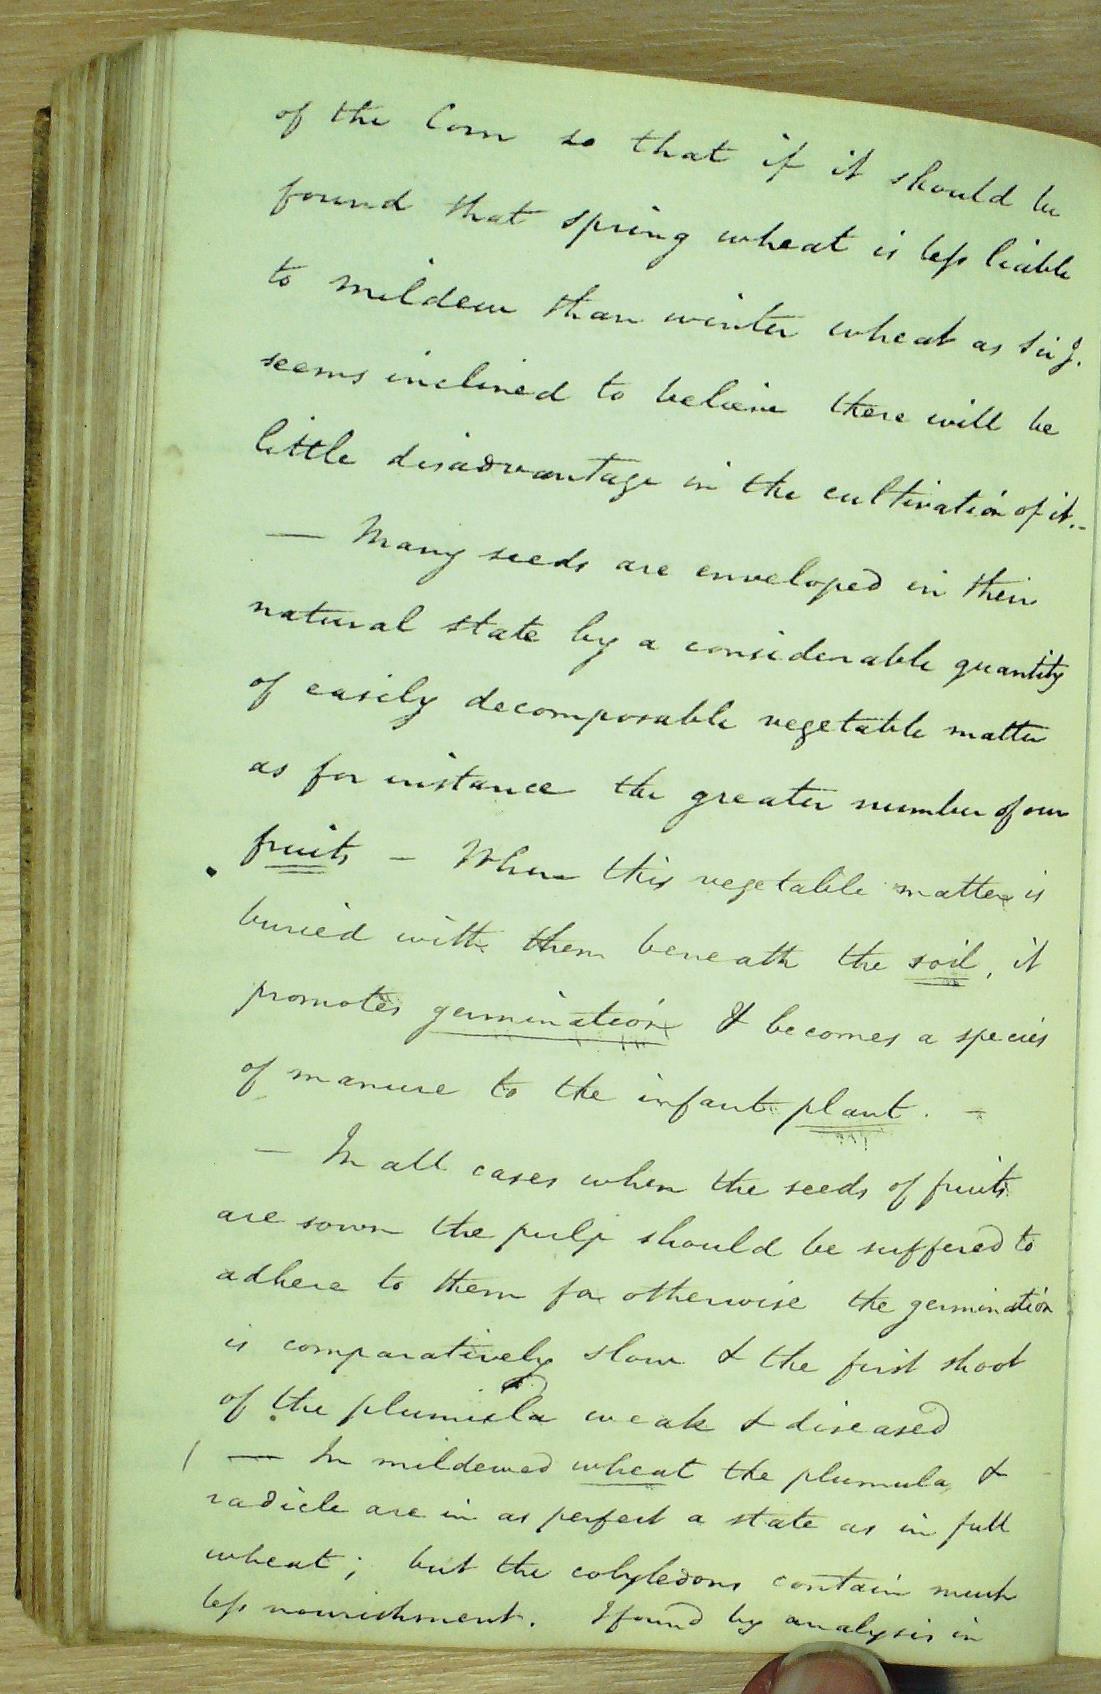 of the Corn so that if it should be
found that spring wheat is less liable
to mildew than winter wheat as Sir J.
seems inclined to believe there will be
little disadvantage in the cultivation of it. -
— Many seeds are enveloped in their
natural state by a considerable quantity
of easily decomposable vegetable matter
as for instance the greater number of our
fruits – When this vegetable matter is
buried with them beneath the soil, it
promotes germination & becomes a species
of manure to the infant plant. -
— In all cases when the seeds of fruits
are sown the pulp should be suffered to
adhere to them for otherwise the germination
is comparatively slow & the first shoot
of the plumula weak & diseased
— In mildewed wheat the plumula, &
radicle are in as perfect a state as in full
wheat; but the cotyledons contain much
less nourishment. I found by analysis in